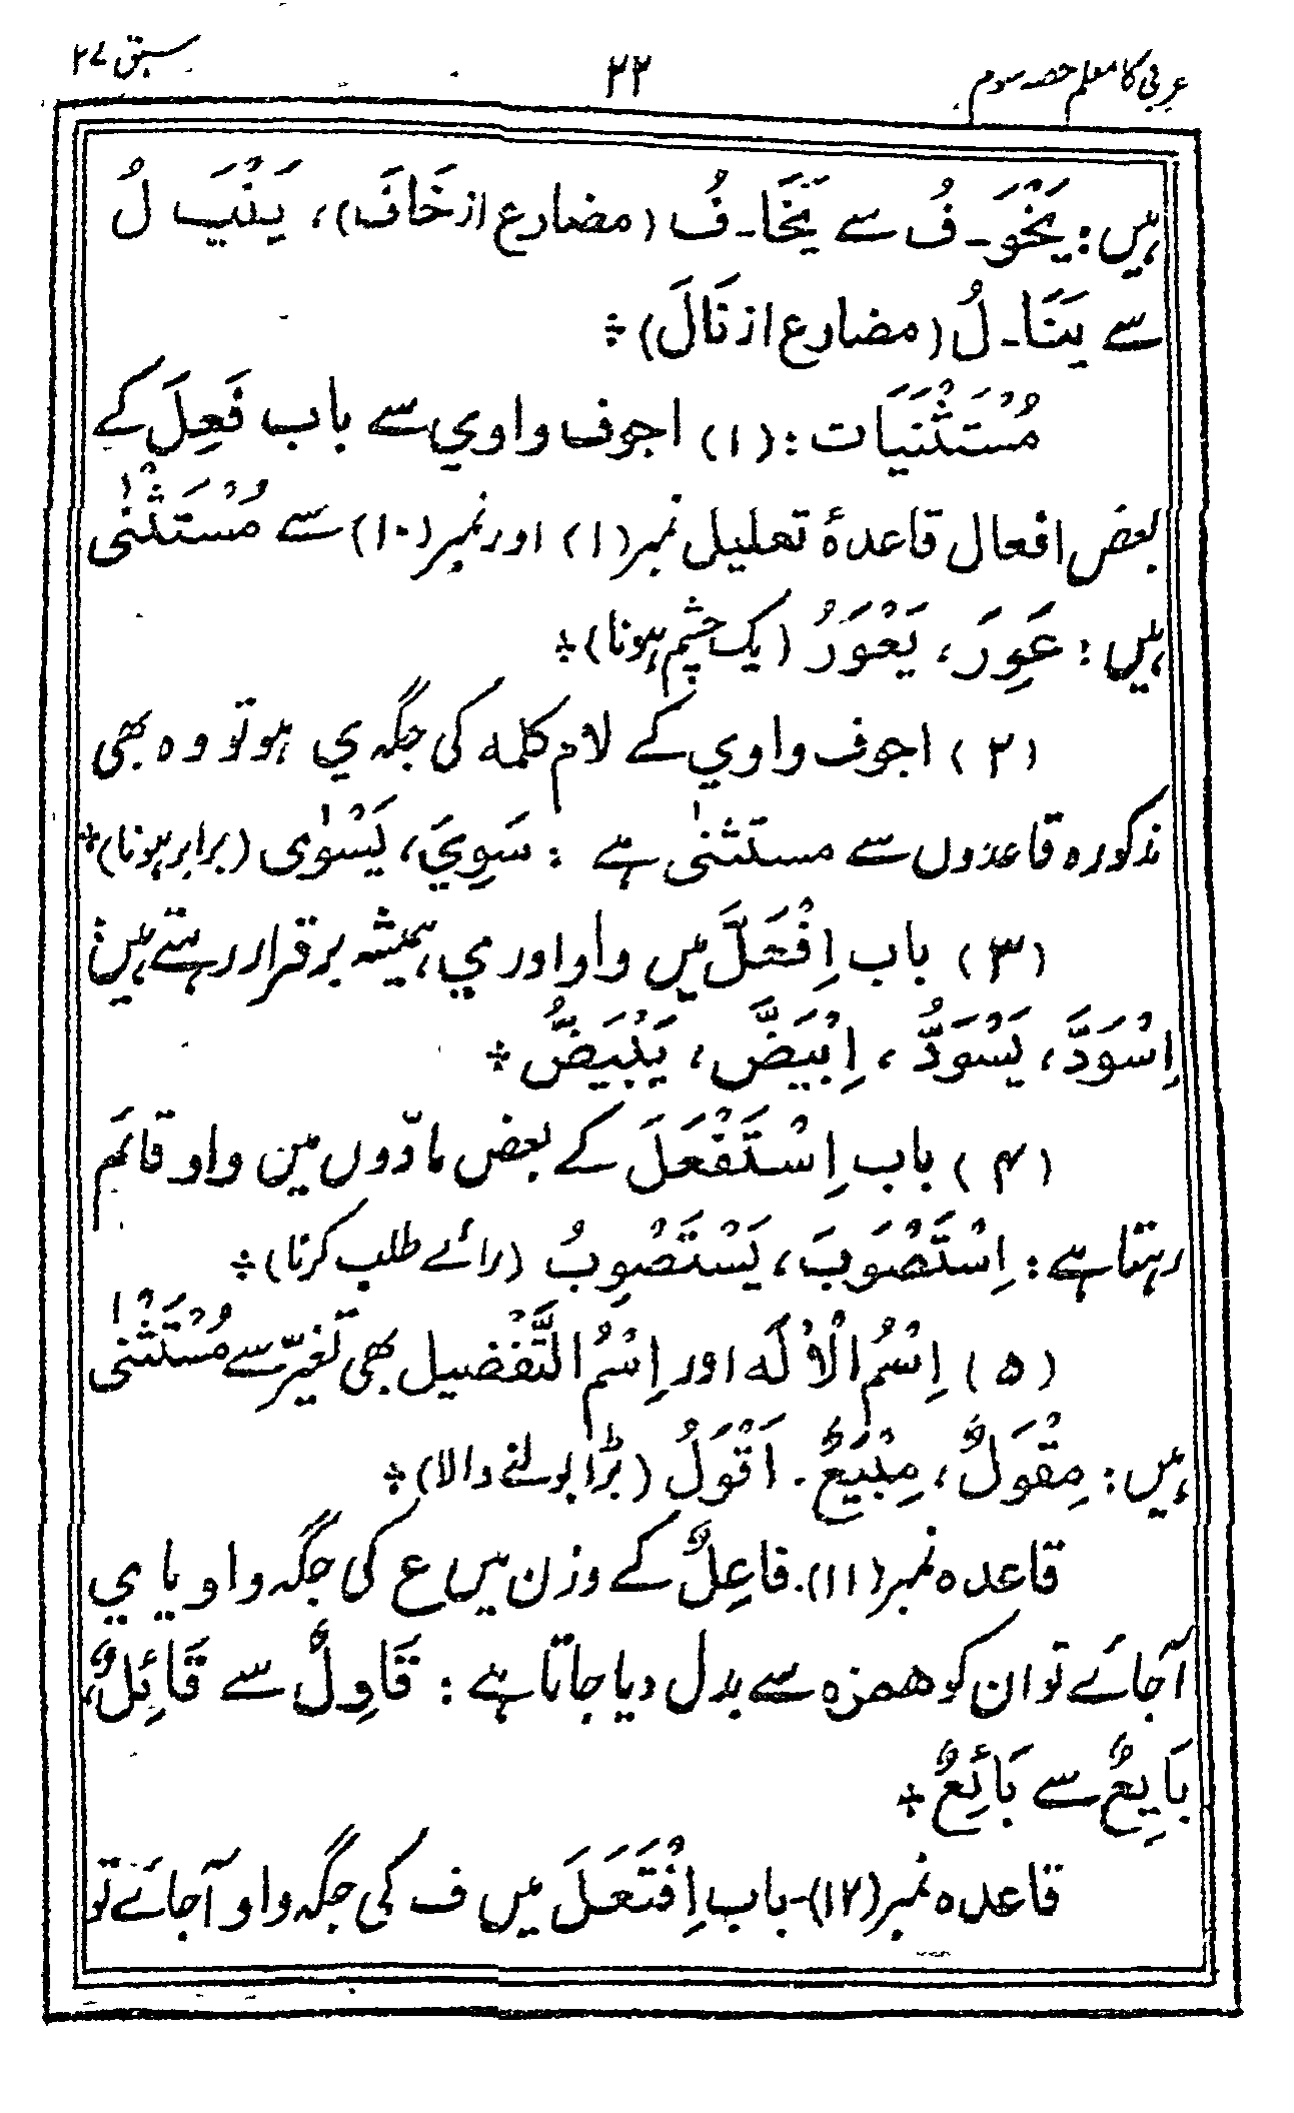 عربی کا معلم حصہ سوم ۲۲ سبق ۲۷
ہیں: یَخْوَ۔فُ سے یَخَا۔فُ (مضارع از خَافَ)، یَنْیَ لُ
سے یَنَا۔لُ (مضارع از نَالَ)÷
مُسْتَثْنَیَات: (۱) اجوف واوي سے باب فَعِلَ کے
بعض افعال قاعدۂ تعلیل نمبر (۱) اور نمبر (۱۰) سے مُسْتَثْنٰی
ہیں: عَوِرَ، یَعْوَرُ (یک چشم ہونا)÷
(۲) اجوف واوي کے لام کلمہ کی جگہ ي ہو تو وہ بھی
مذکورہ قاعدوں سے مستثنٰی ہے : سَوِيَ، یَسْوٰی (برابر ہونا)÷
(۳) باب اِفْعَلَّ میں واو اور ي ہمیشہ برقرار رہتے ہیں:
اِسْوَدَّ، یَسْوَدُّ، اِبْیَضَّ، یَبْیَضُّ÷
(۴) باب اِسْتَفْعَلَ کے بعض مادّوں مین واو قائم
رہتا ہے: اِسْتَصْوَبَ، یَسْتَصْوِبُ (رائے طلب کرنا)÷
(۵) اِسْمُ الْاٰلَه اور اِسْمُ التَّفْضیل بھی تَغیّر سے مُسْتَثْنٰی
ہیں: مِقْوَلٌ، مِبْیَعٌ۔ اَقْوَلُ (بڑا بولنے والا)÷
قاعدہ نمبر (۱۱)۔ فاعِلٌ کے وزن میں ع کی جگہ واو یا ي
آجائے تو ان کو همزه سے بدل دیا جاتا ہے : قَاوِلٌ سے قَائِلٌ،
بَایِعٌ سے بَائِعٌ÷
قاعدہ نمبر (۱۲)۔ باب اِفْتَعَلَ میں ف کی جگہ واو آجائے تو